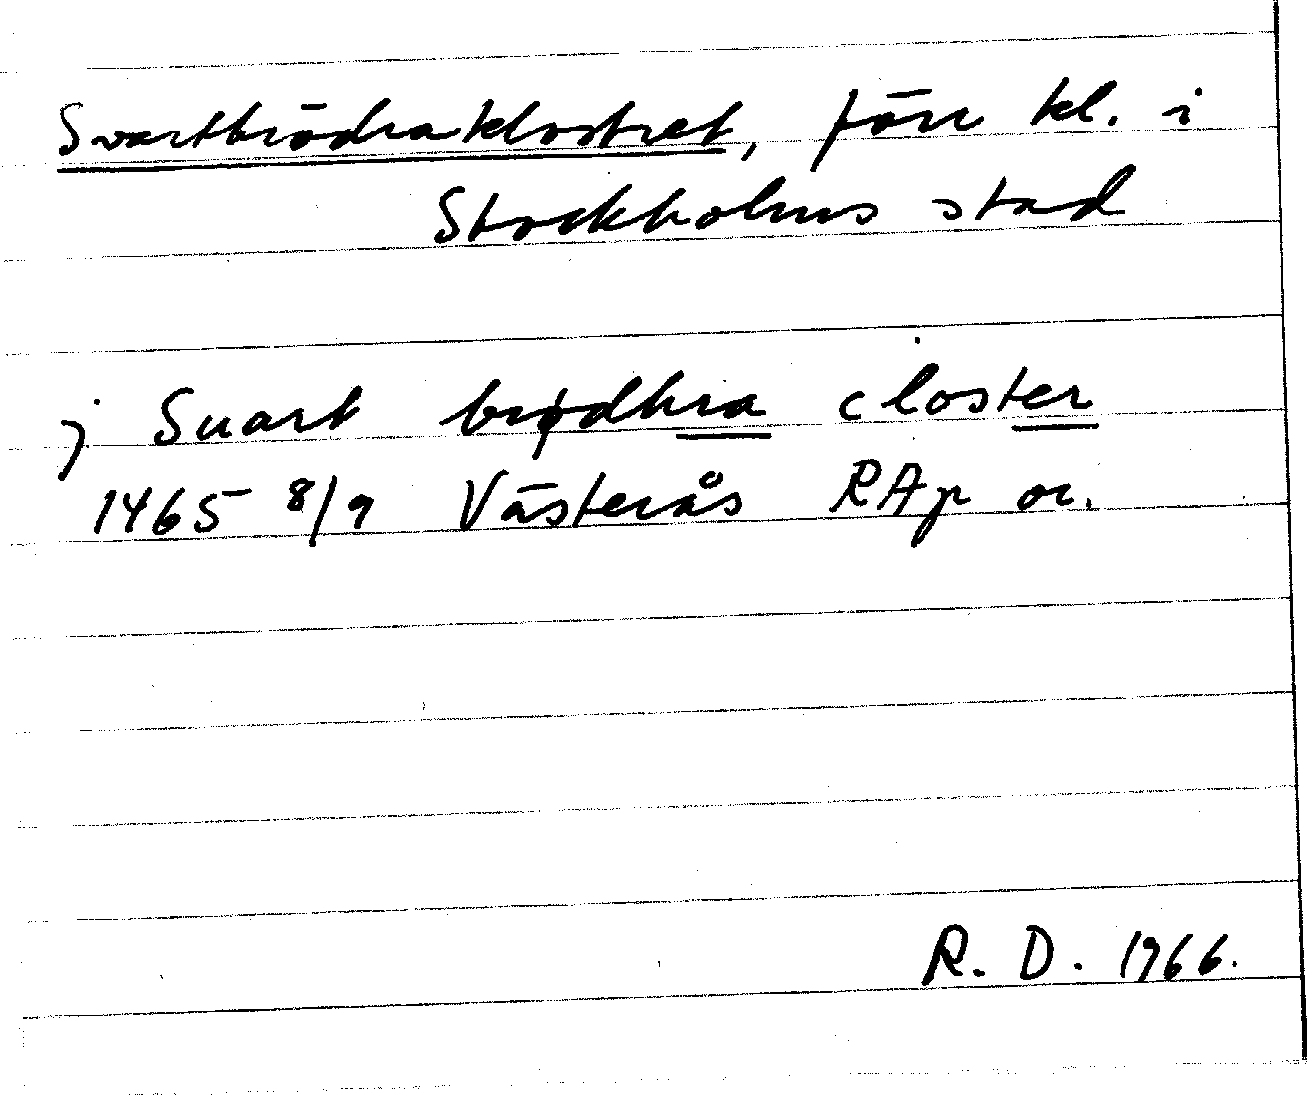 Svartbrödraklostret, förr kl. i
Stockholms stad
j Suart brødhra closter
1465 8/9 Västerås RAp or.
R. D. 1966.